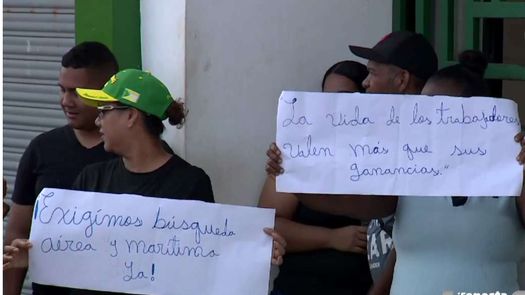 ¡Exigimos búsqueda
aérea y marítima
Ya!
La vida de los trabajadores
Valen más que sus
ganancias."